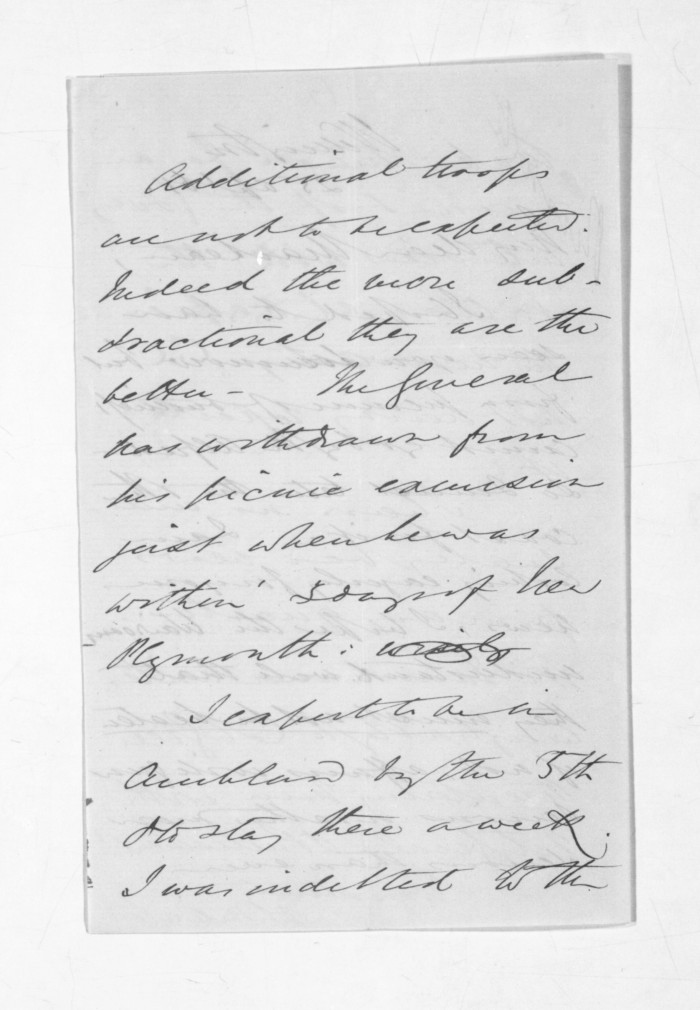 Additional troops
are not to be expected.
Indeed the more sub-
stractional they are the
better - The General
has withdrawn from
his picnic excursion
just when he was
within 3 days of New
Plymouth:
I expect to be in
Auckland by the 5th
& to stay there a week.
I was indebted to the